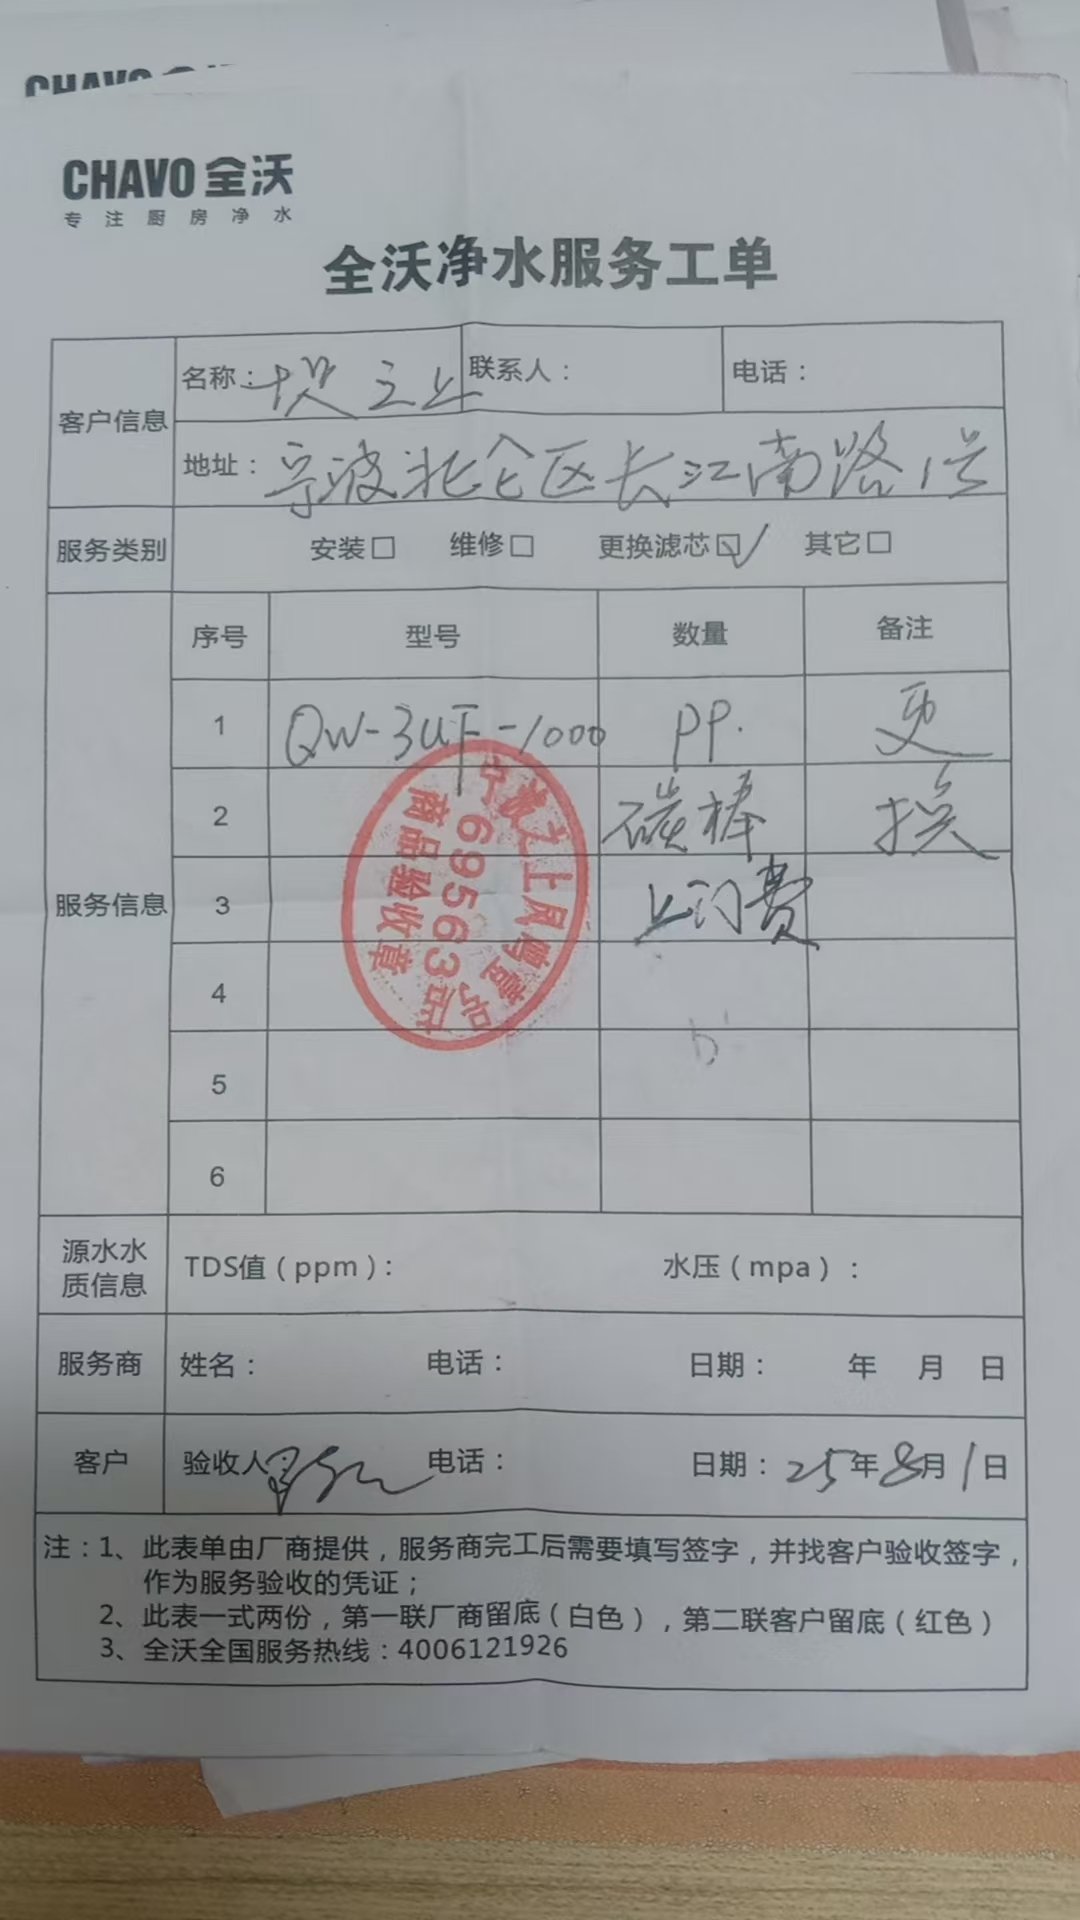 CHAVO 全
CHAVO 全沃
专注厨房净水
全沃净水服务工单
客户信息
名称：之上 联系人： 电话：
地址：宁波北仑区长江南路1号
服务类别 安装□ 维修□ 更换滤芯☑ 其它□
服务信息
序号 型号 数量 备注
1 QW-3UF-1000 PP. 更
2 碳棒 换
3 上门费
4
5
6
商品验收章
69563店
源水水质信息 TDS值（ppm）： 水压（mpa）：
服务商 姓名： 电话： 日期： 年 月 日
客户 验收人 电话： 日期：25年8月1日
注：1、此表单由厂商提供，服务商完工后需要填写签字，并找客户验收签字，
作为服务验收的凭证；
2、此表一式两份，第一联厂商留底（白色），第二联客户留底（红色）
3、全沃全国服务热线：4006121926